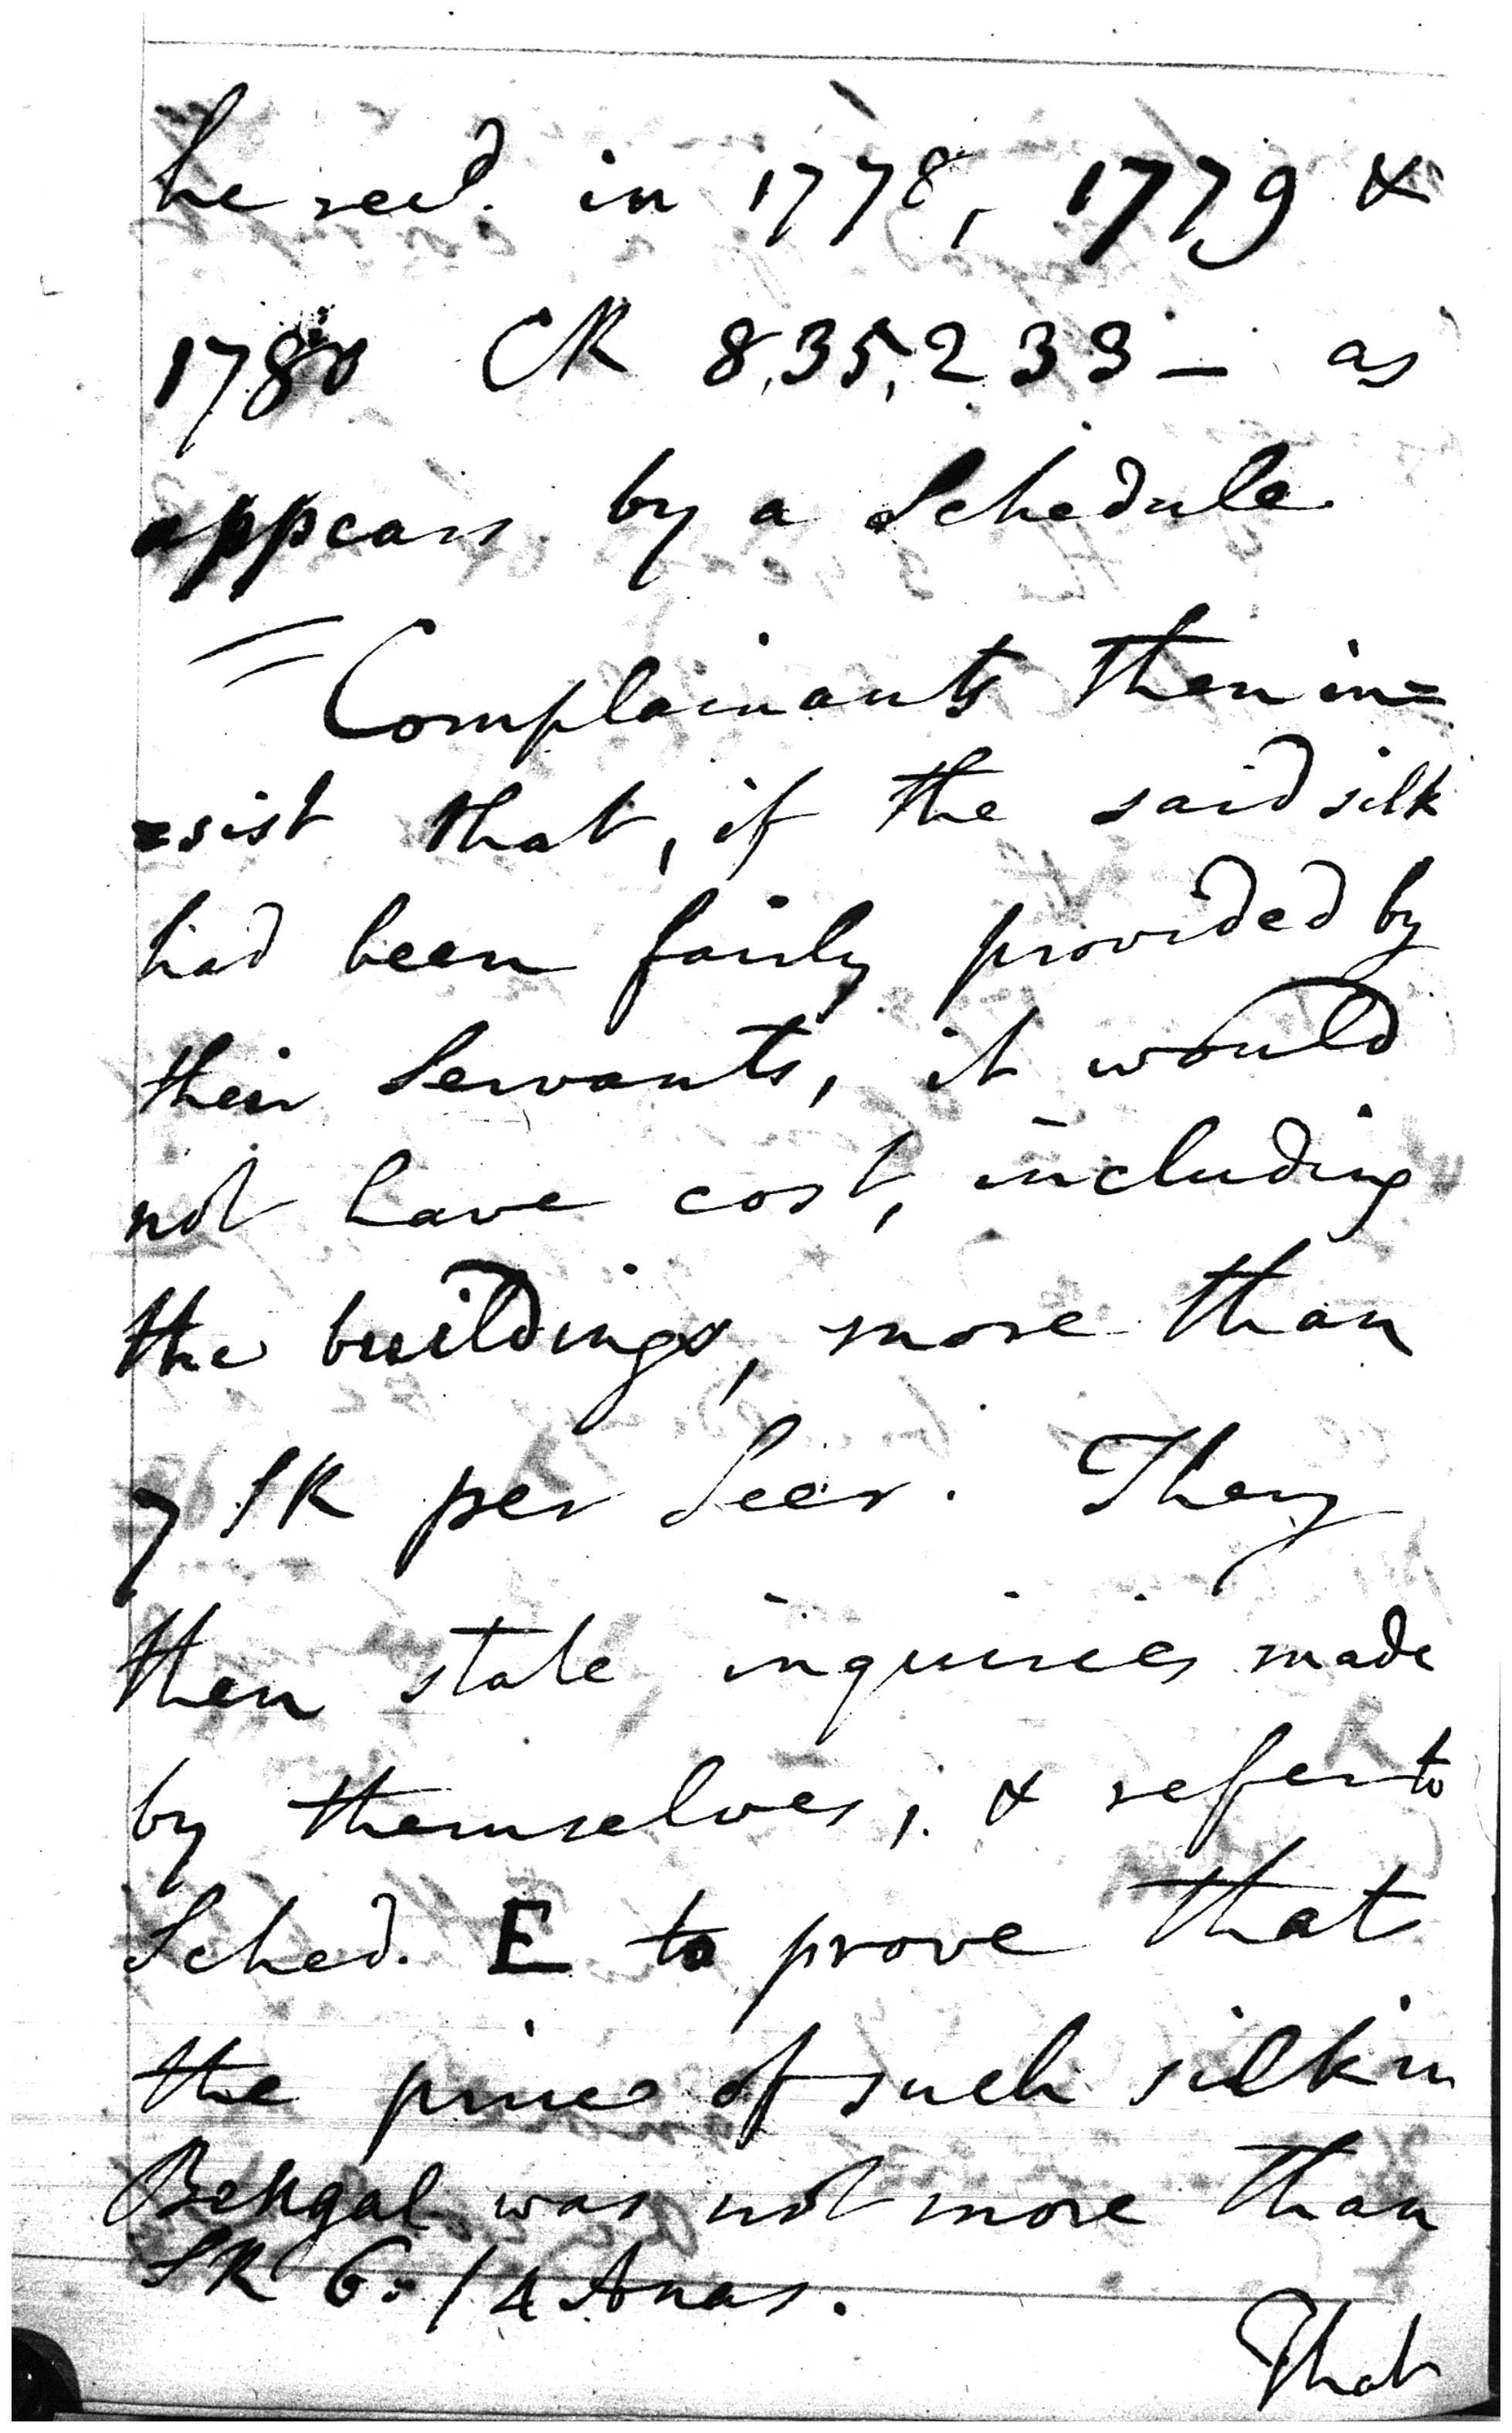 he recd. in 1778, 1779 &
1780 CR 8,35,233 — as
appears by a Schedule
= Complainants then in=
=sist that, if the said silk
had been fairly provided by
their Servants, it would
not have cost, including
the buildings, more than
7 SR per Seer. They
then state inquiries made
by themselves, & refer to
Sched. E to prove that
the price of such silk in
Bengal was not more than
SR 6: 14 Anas.
That